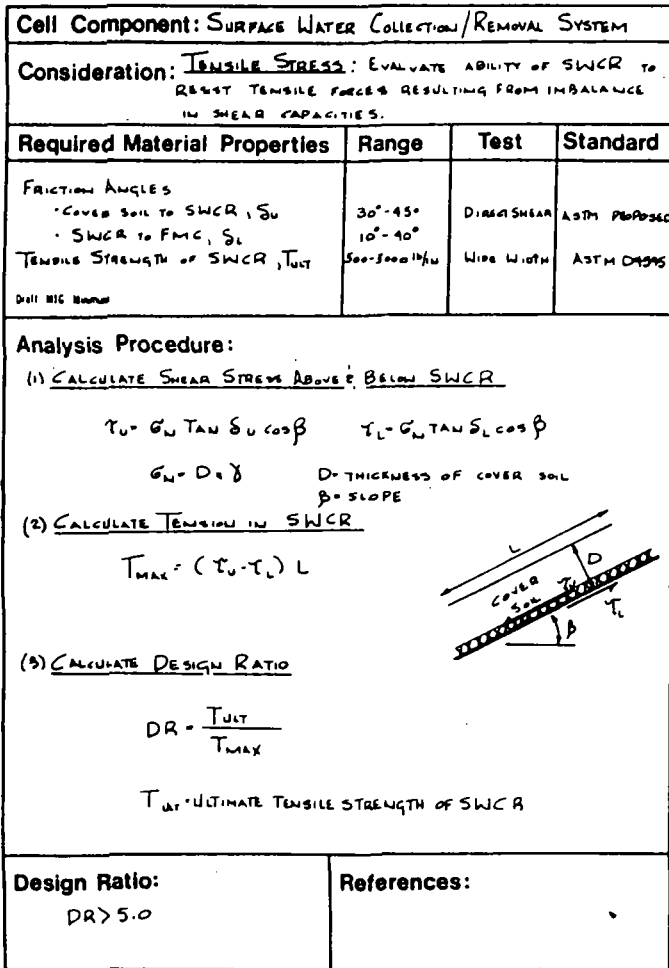 Cell Component: SURFACE WATER COLLECTION/REMOVAL SYSTEM
Consideration: TENSILE STRESS: EVALUATE ABILITY OF SWCR TO
RESIST TENSILE FORCES RESULTING FROM IMBALANCE
IN SHEAR CAPACITIES.
Required Material Properties Range Test Standard
FRICTION ANGLES
• COVER SOIL TO SWCR, δU 30°-45° DIRECT SHEAR ASTM PROPOSED
• SWCR TO FMC, δL 10°-40°
TENSILE STRENGTH OF SWCR, TULT 500-5000 lb/IN WIDE WIDTH ASTM D4595
Draft
Analysis Procedure:
(1) CALCULATE SHEAR STRESS ABOVE & BELOW SWCR
τU = σN TAN δU cos β τL = σN TAN δL cos β
σN = D • γ D = THICKNESS OF COVER SOIL
β = SLOPE
(2) CALCULATE TENSION IN SWCR
TMAX = (τU - τL) L
L
D
COVER
SOIL
τU
τL
β
(3) CALCULATE DESIGN RATIO
DR = TULT
TMAX
TULT = ULTIMATE TENSILE STRENGTH OF SWCR
Design Ratio: References:
DR > 5.0